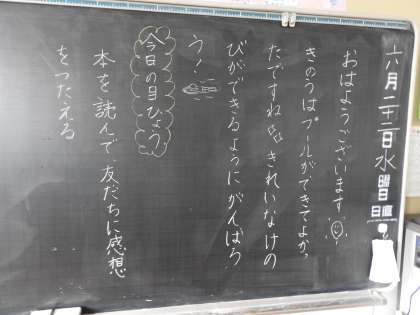 六月二十二日水曜日
日直
おはようございます
きのうはプールができてよかっ
たですね きれいなけの
びができるようにがんばろ
う!
今日の目ひょう
本を読んで、友だちに感想
をつたえる